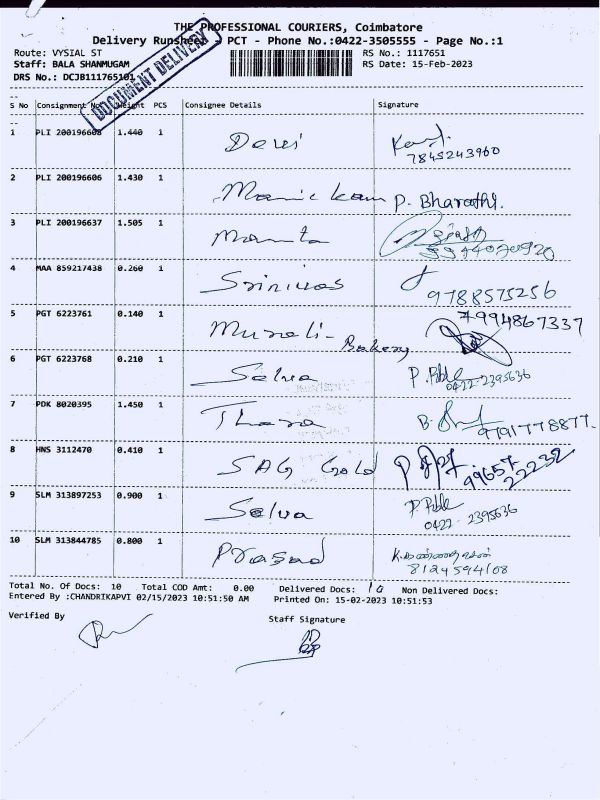 THE PROFESSIONAL COURIERS, Coimbatore
Delivery Runsheet - PCT - Phone No.:0422-3505555 - Page No.:1
Route: VYSIAL ST RS No.: 1117651
Staff: BALA SHANMUGAM RS Date: 15-Feb-2023
DRS No.: DCJB111765101
DOCUMENT DELIVERY
S No Consignment No Weight PCS Consignee Details Signature
1 PLI 200196608 1.440 1 Devi
7845243960
2 PLI 200196606 1.430 1 Manickam P. Bharathi.
3 PLI 200196637 1.505 1 Mamta
4 MAA 859217438 0.260 1 Srinivas
9788575256
5 PGT 6223761 0.140 1 Murali- Bakery 7994867337
6 PGT 6223768 0.210 1 Selva
0422-2395636
7 PDK 8020395 1.450 1 Thara
9791778877.
8 HNS 3112470 0.410 1 SAG Gold 99657
22232
9 SLM 313897253 0.900 1 Selva
0422-2395636
10 SLM 313844785 0.800 1 Prasad
8124594108
Total No. Of Docs: 10 Total COD Amt: 0.00 Delivered Docs: 10 Non Delivered Docs:
Entered By :CHANDRIKAPVI 02/15/2023 10:51:50 AM Printed On: 15-02-2023 10:51:53
Verified By Staff Signature